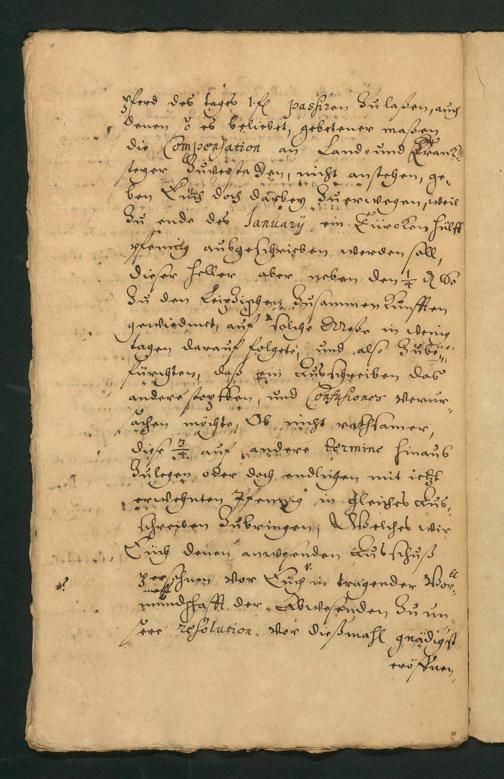 Pferd des tages 1 fl passiren zu laßen, auch
denen es beliebet, gebetener maßen
die Compensation an Land= und Tranck=
steuer zuverstaden, nicht anstehen, ge=
ben Euch doch darbey zuerwegen, weil
zu ende des January ein Türcken hülff
pfennig außgeschrieben werden soll,
dieser heller aber neben den 1/4 so
zu den Leipzischen Zusammenkunfften
gewiedmet, auf solche Meße in wenig
tagen darauf folgete, und also zube=
fürchten, daß ein Ausschreiben das
andere stopffen, und Confusiones verur=
sachen möchte, Ob nicht rathsamer,
diese 3/4 auf andere termine hinaus
zulegen, oder doch endlichen mit jetzt
erwehnten Pfennig in gleiches Aus=
schreiben zubringen, Welches wir
Euch denen anwesenden Ausschuß
vor Euch in tragender Vor=
mundschafft der Abwesenden zu un
sere resolution vor dießmahl gnädigst
eröffnen,